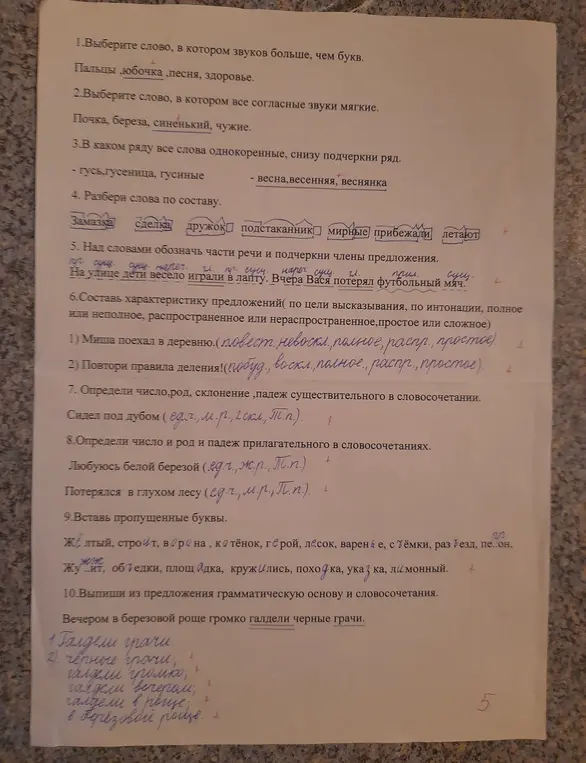 1.Выберите слово, в котором звуков больше, чем букв.
Пальцы ,юбочка ,песня, здоровье.
2.Выберите слово, в котором все согласные звуки мягкие.
Почка, береза, синенький, чужие.
3.В каком ряду все слова однокоренные, снизу подчеркни ряд.
- гусь,гусеница, гусиные - весна,весенняя, веснянка
4. Разбери слова по составу.
Замазка сделка дружок подстаканник мирные прибежали летают
5. Над словами обозначь части речи и подчеркни члены предложения.
пр. сущ. сущ. нареч. г. пр. сущ. нареч. сущ. г. прил. сущ.
На улице дети весело играли в лапту. Вчера Вася потерял футбольный мяч.
6.Составь характеристику предложений( по цели высказывания, по интонации, полное
или неполное, распространенное или нераспространенное,простое или сложное)
1) Миша поехал в деревню.(повест., невоскл., полное, распр., простое)
2) Повтори правила деления!(побуд., воскл., полное, распр., простое)
7. Определи число,род, склонение ,падеж существительного в словосочетании.
Сидел под дубом ( ед.ч., м.р., 2скл., Т.п.).
8.Определи число и род и падеж прилагательного в словосочетаниях.
Любуюсь белой березой (ед.ч., ж.р., Т.п.)
Потерялся в глухом лесу (ед.ч., м.р., П.п.).
9.Вставь пропущенные буквы.
Жёлтый, строит, ворона , котёнок, герой, лесок, варенье, съёмки, разъезд, перрон.
Жужжит, объедки, площадка, кружились, походка, указка, лимонный.
10.Выпиши из предложения грамматическую основу и словосочетания.
Вечером в березовой роще громко галдели черные грачи.
1) Галдели грачи
2) чёрные грачи,
галдели громко,
галдели вечером,
галдели в роще,
в березовой роще.
5